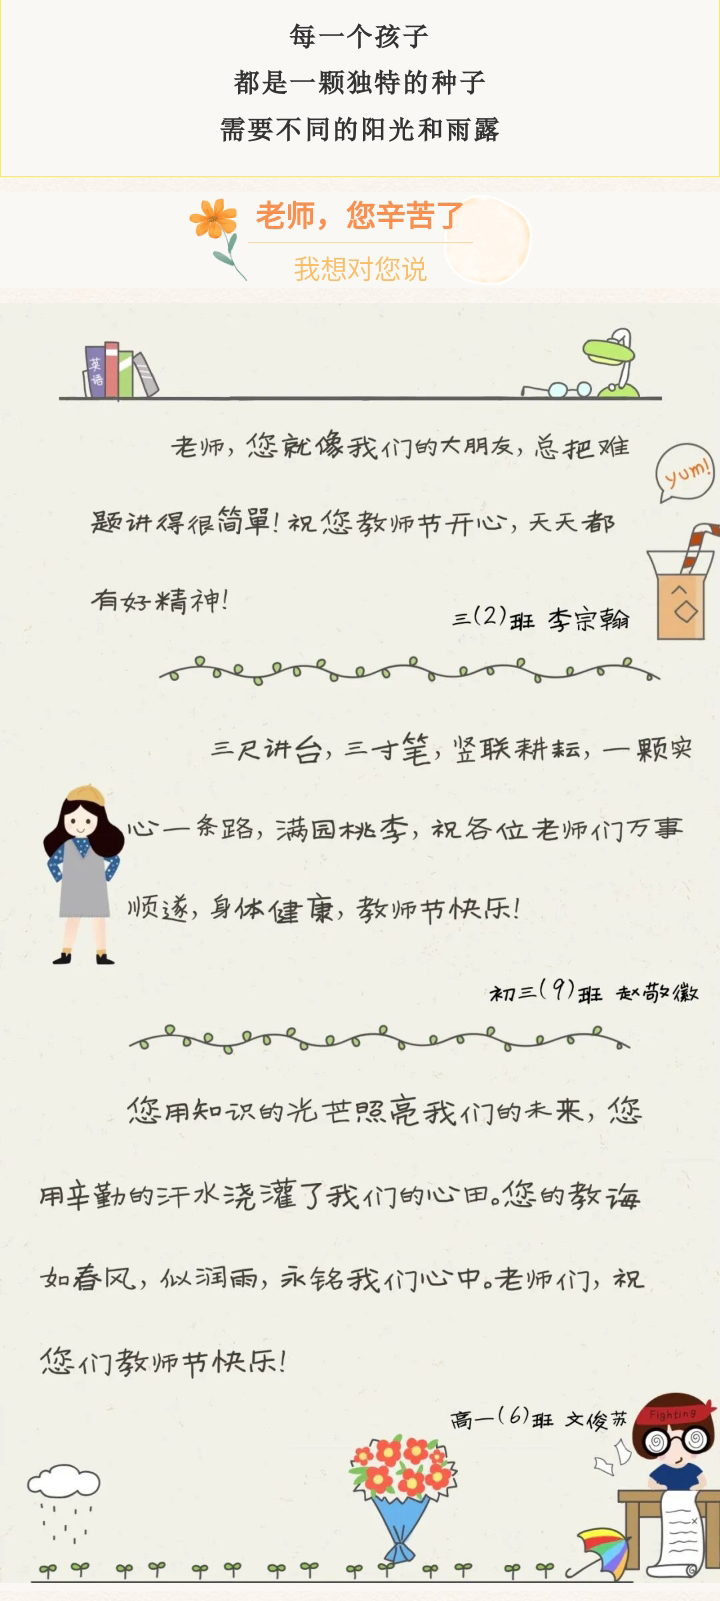 每一个孩子
都是一颗独特的种子
需要不同的阳光和雨露
老师，您辛苦了
我想对您说
英语
老师，您就像我们的大朋友，总把难
题讲得很简單！祝您教师节开心，天天都
有好精神！
yum!
三(2)班 李宗翰
三尺讲台，三寸笔，竖联耕耘，一颗实
心一条路，满园桃李，祝各位老师们万事
顺遂，身体健康，教师节快乐！
初三(9)班 赵敬徽
您用知识的光芒照亮我们的未来，您
用辛勤的汗水浇灌了我们的心田。您的教诲
如春风，似润雨，永铭我们心中。老师们，祝
您们教师节快乐！
高一(6)班 文俊苏
Fighting